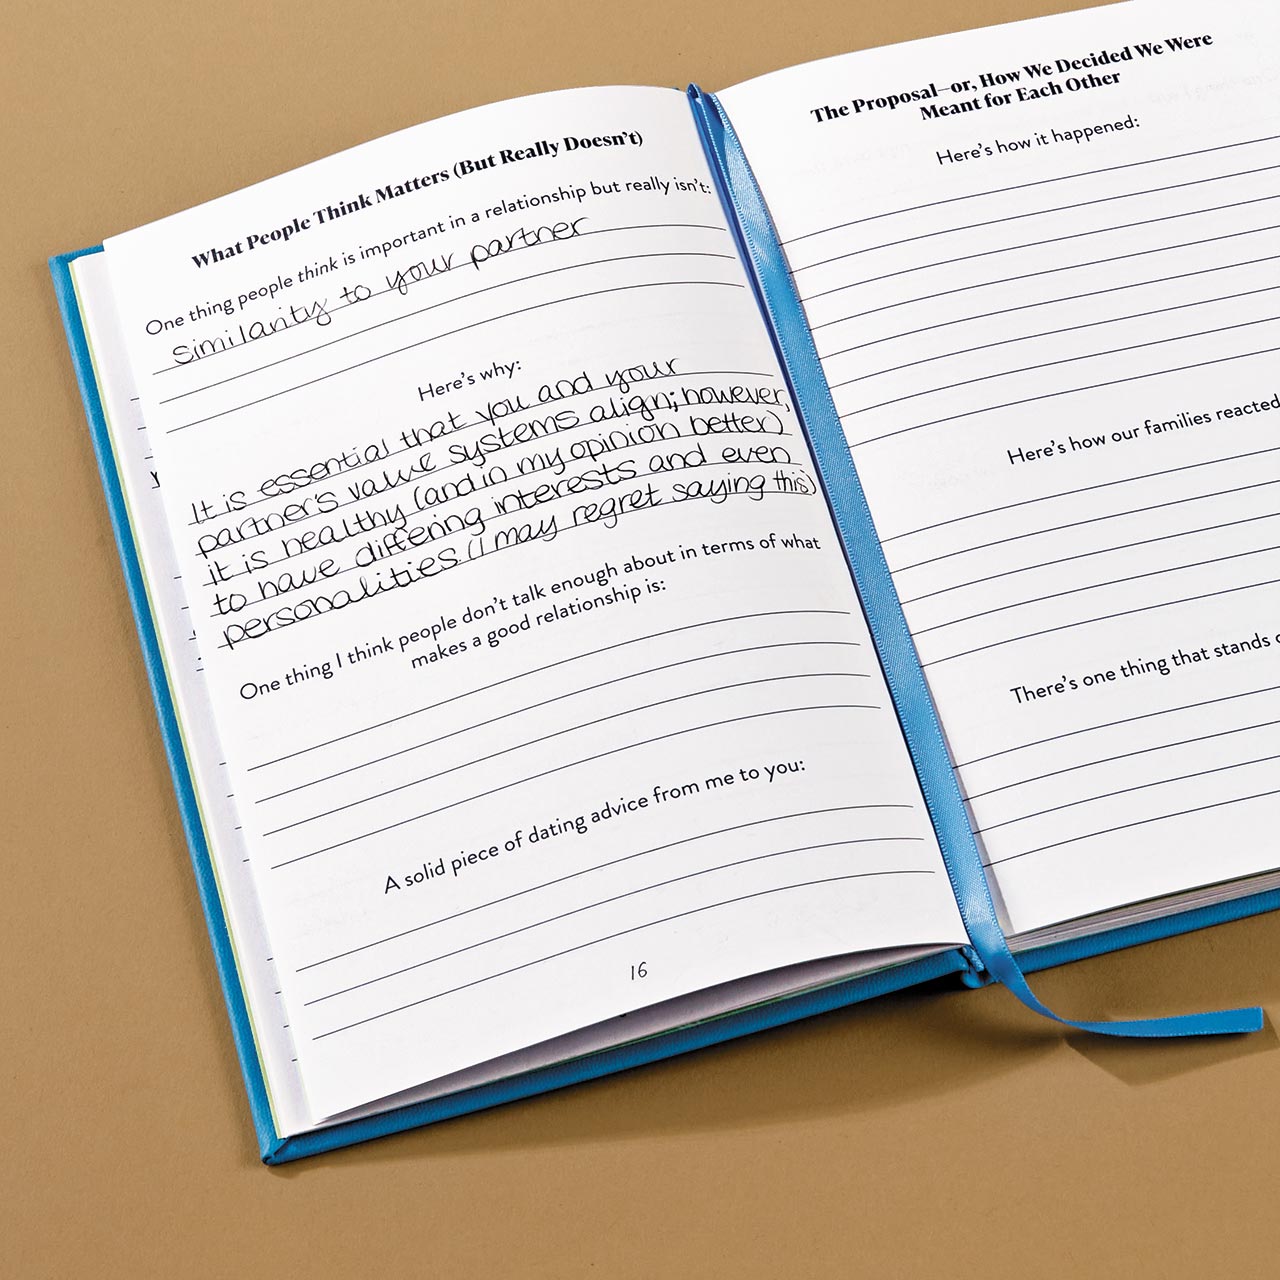 What People Think Matters (But Really Doesn't)
One thing people think is important in a relationship but really isn't:
similarity to your partner
Here's why:
It is essential that you and your
partner's value systems align; however,
it is healthy (and in my opinion better)
to have differing interests and even
personalities. (I may regret saying this)
One thing I think people don't talk enough about in terms of what
makes a good relationship is:
A solid piece of dating advice from me to you:
16
The Proposal—or, How We Decided We Were
Meant for Each Other
Here's how it happened:
Here's how our families reacted
There's one thing that stands